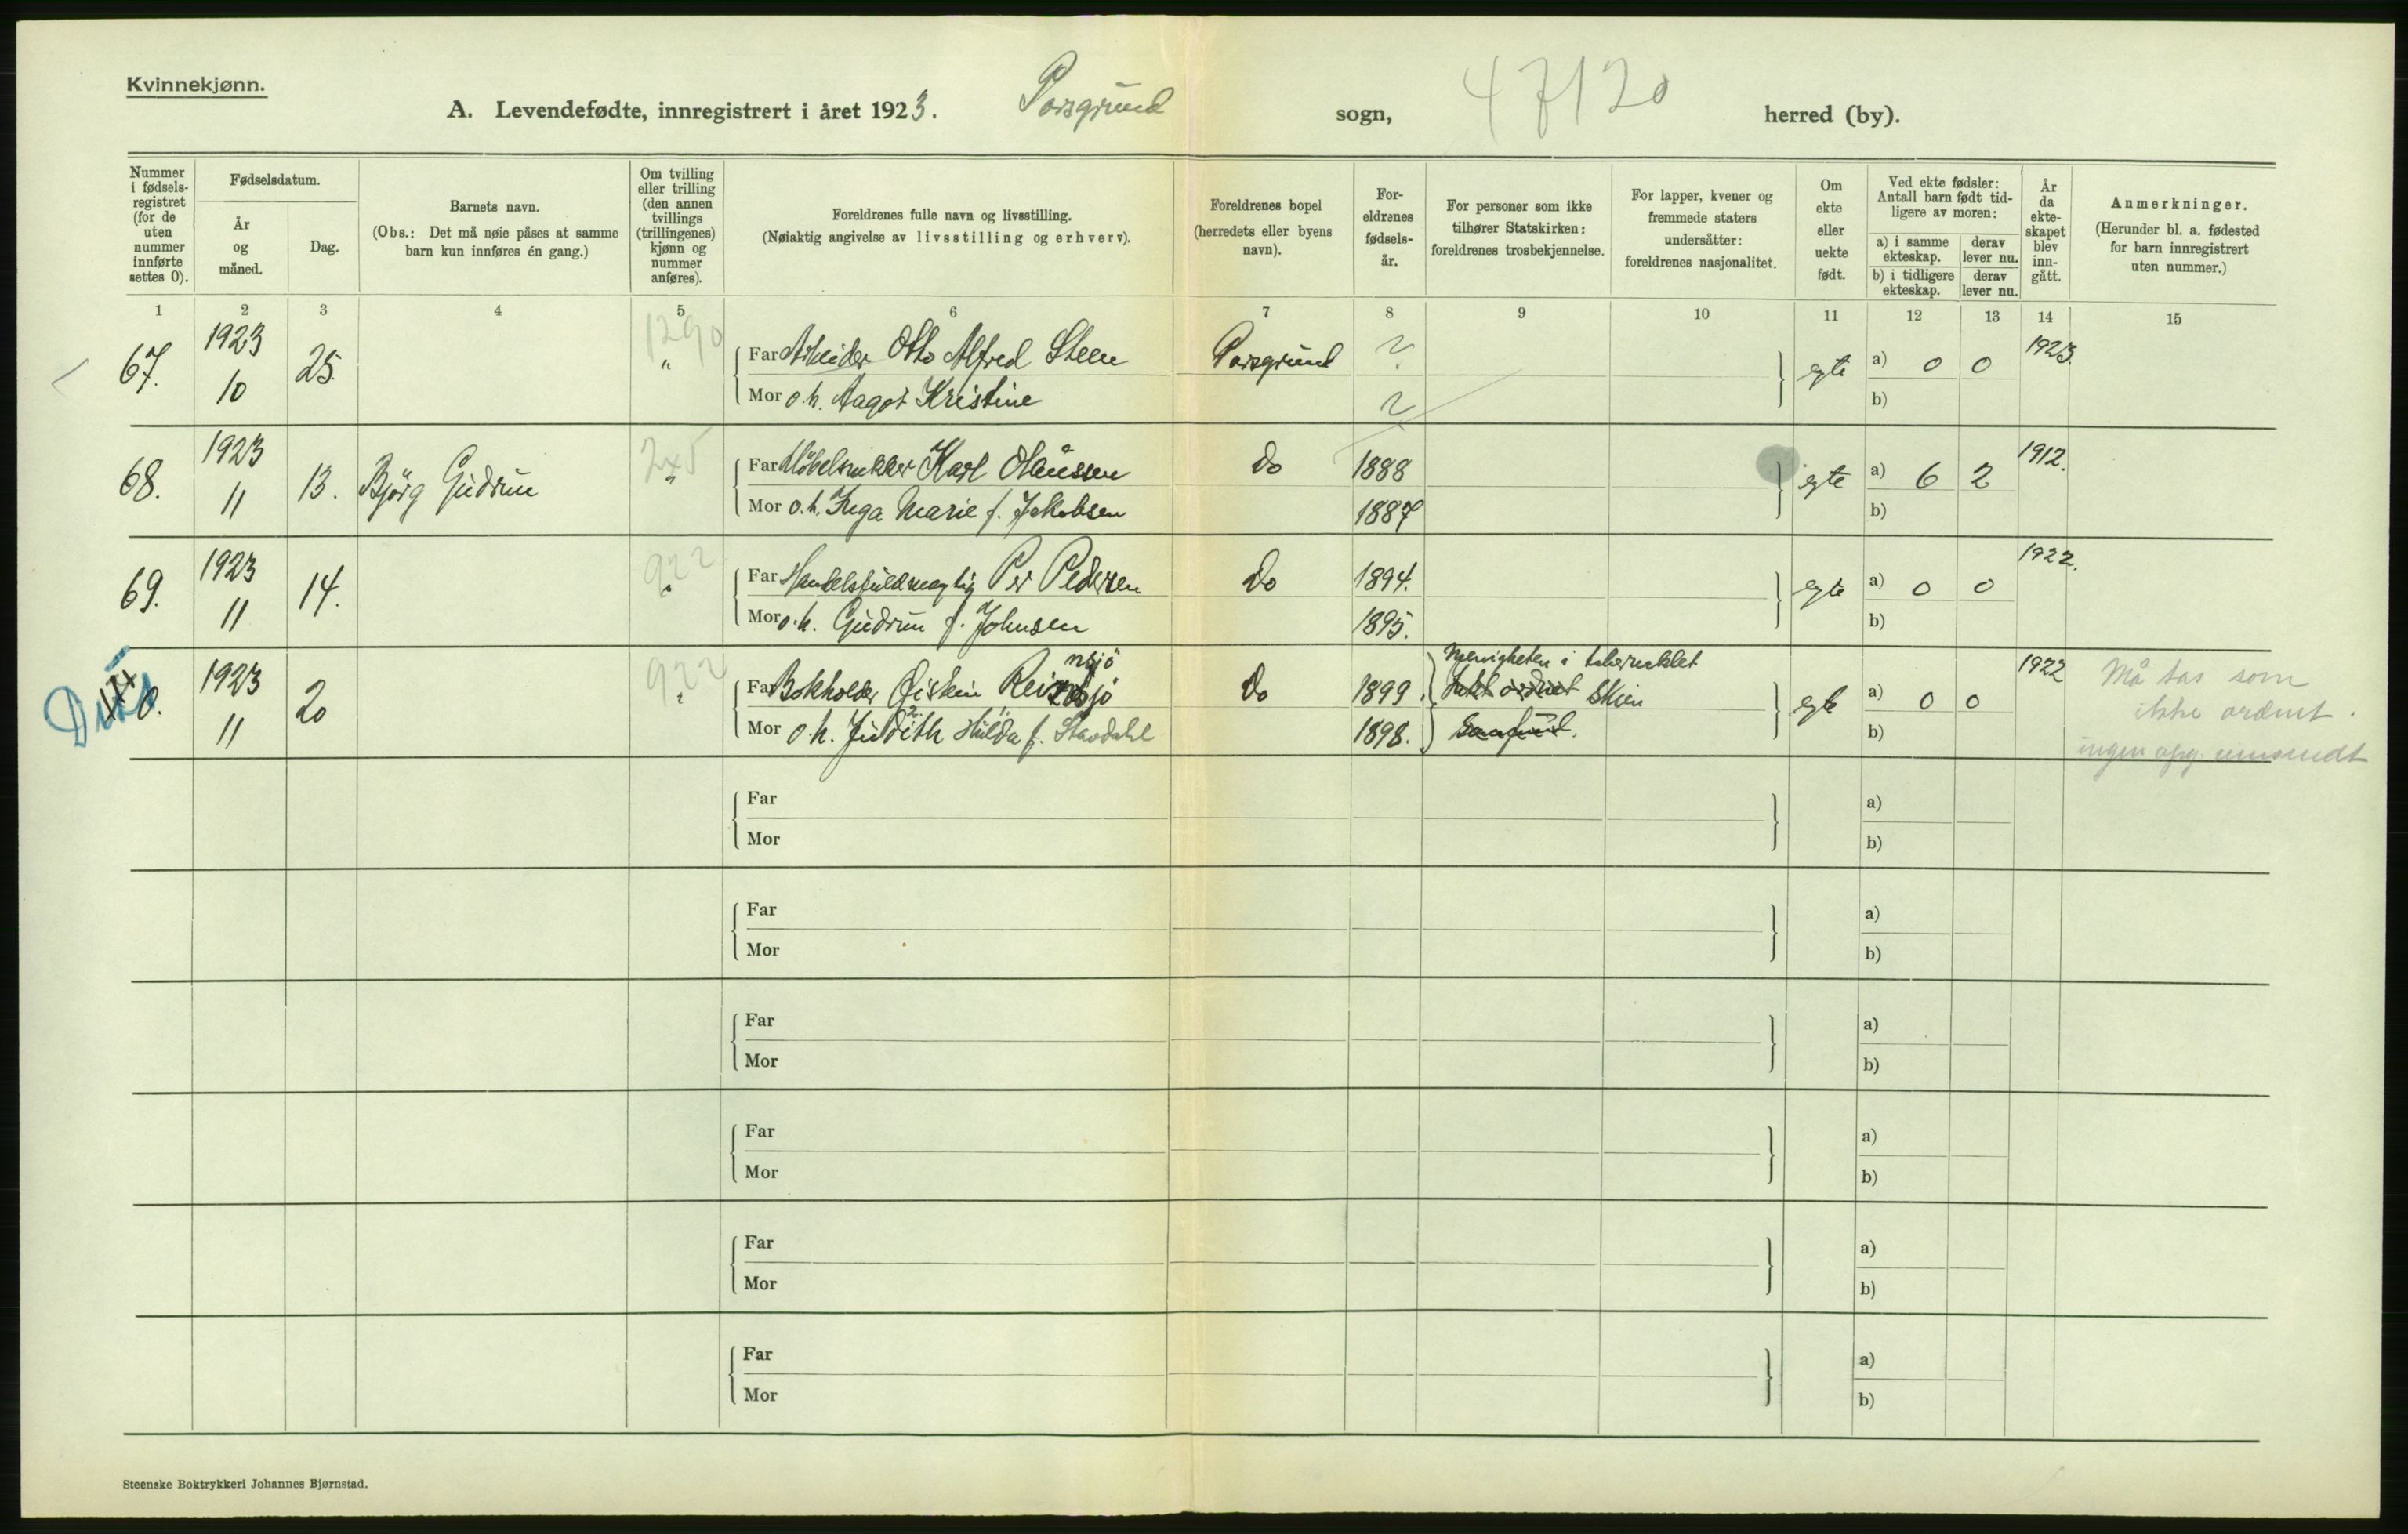 Kvinnekjønn.
A. Levendefødte, innregistrert i året 1923. Porsgrund sogn, 47120 herred (by).
Nummer i fødselsregistret (for de uten nummer innførte settes 0).
Fødselsdatum.
År og måned.
Dag.
Barnets navn.
(Obs.: Det må nøie påses at samme barn kun innføres én gang.)
Om tvilling eller trilling (den annen tvillings (trillingenes) kjønn og nummer anføres).
Foreldrenes fulle navn og livsstilling.
(Nøiaktig angivelse av livsstilling og erhverv).
Foreldrenes bopel (herredets eller byens navn).
Foreldrenes fødselsår.
For personer som ikke tilhører Statskirken: foreldrenes trosbekjennelse.
For lapper, kvener og fremmede staters undersåtter: foreldrenes nasjonalitet.
Om ekte eller uekte født.
Ved ekte fødsler: Antall barn født tidligere av moren:
a) i samme ekteskap. derav lever nu.
b) i tidligere ekteskap. derav lever nu.
År da ekteskapet blev inngått.
Anmerkninger.
(Herunder bl. a. fødested for barn innregistrert uten nummer.)
1 2 3 4 5 6 7 8 9 10 11 12 13 14 15
67. 1923 10 25. 1290 " Far Arbeider Otto Alfred Steen Porsgrund ? egte a) 0 0 1923.
Mor o.h. Aagot Kristine ? b)
68. 1923 11 13. Bjørg Gudrun 245 " Far Møbelsnekker Karl Olaussen Do 1888 egte a) 6 2 1912.
Mor o.h. Inga Marie f. Jakobsen 1887 b)
69. 1923 11 14. 922 " Far Handelsfuldmægtig Per Pedersen Do 1894. egte a) 0 0 1922.
Mor o.h. Gudrun f. Johnsen 1895. b)
0. 1923 11 20 922 " Far Bokholder Øistein Do 1899. Menigheten i tabernaklet Skien egte a) 0 0 1922 Må tas som ikke ordnet.
Mor o.h. Judith Hilda f. Stavdahl 1898. Samfund. b) ingen opg. innsendt
Far a)
Mor b)
Far a)
Mor b)
Far a)
Mor b)
Far a)
Mor b)
Far a)
Mor b)
Far a)
Mor b)
Steenske Boktrykkeri Johannes Bjørnstad.